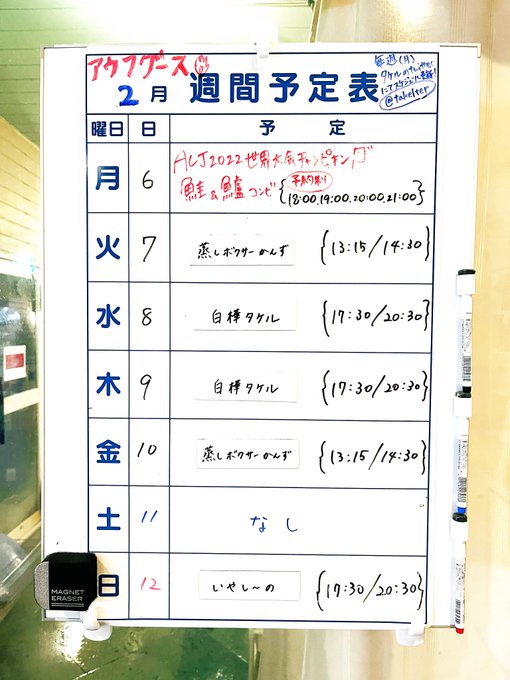 アウフグース
2月 週間予定表
毎週(月)
タケルのツイッター
にてスケジュール更新!
@takelter
曜日 日 予定
月 6 ALJ2022世界大会チャンピオン
鮭&鱸コンビ 予約制 {18:00,19:00,20:00,21:00}
火 7 蒸しボクサーかんず {13:15/14:30}
水 8 白樺タケル {17:30/20:30}
木 9 白樺タケル {17:30/20:30}
金 10 蒸しボクサーかんず {13:15/14:30}
土 11 なし
日 12 いやし~の {17:30/20:30}
MAGNET
ERASER